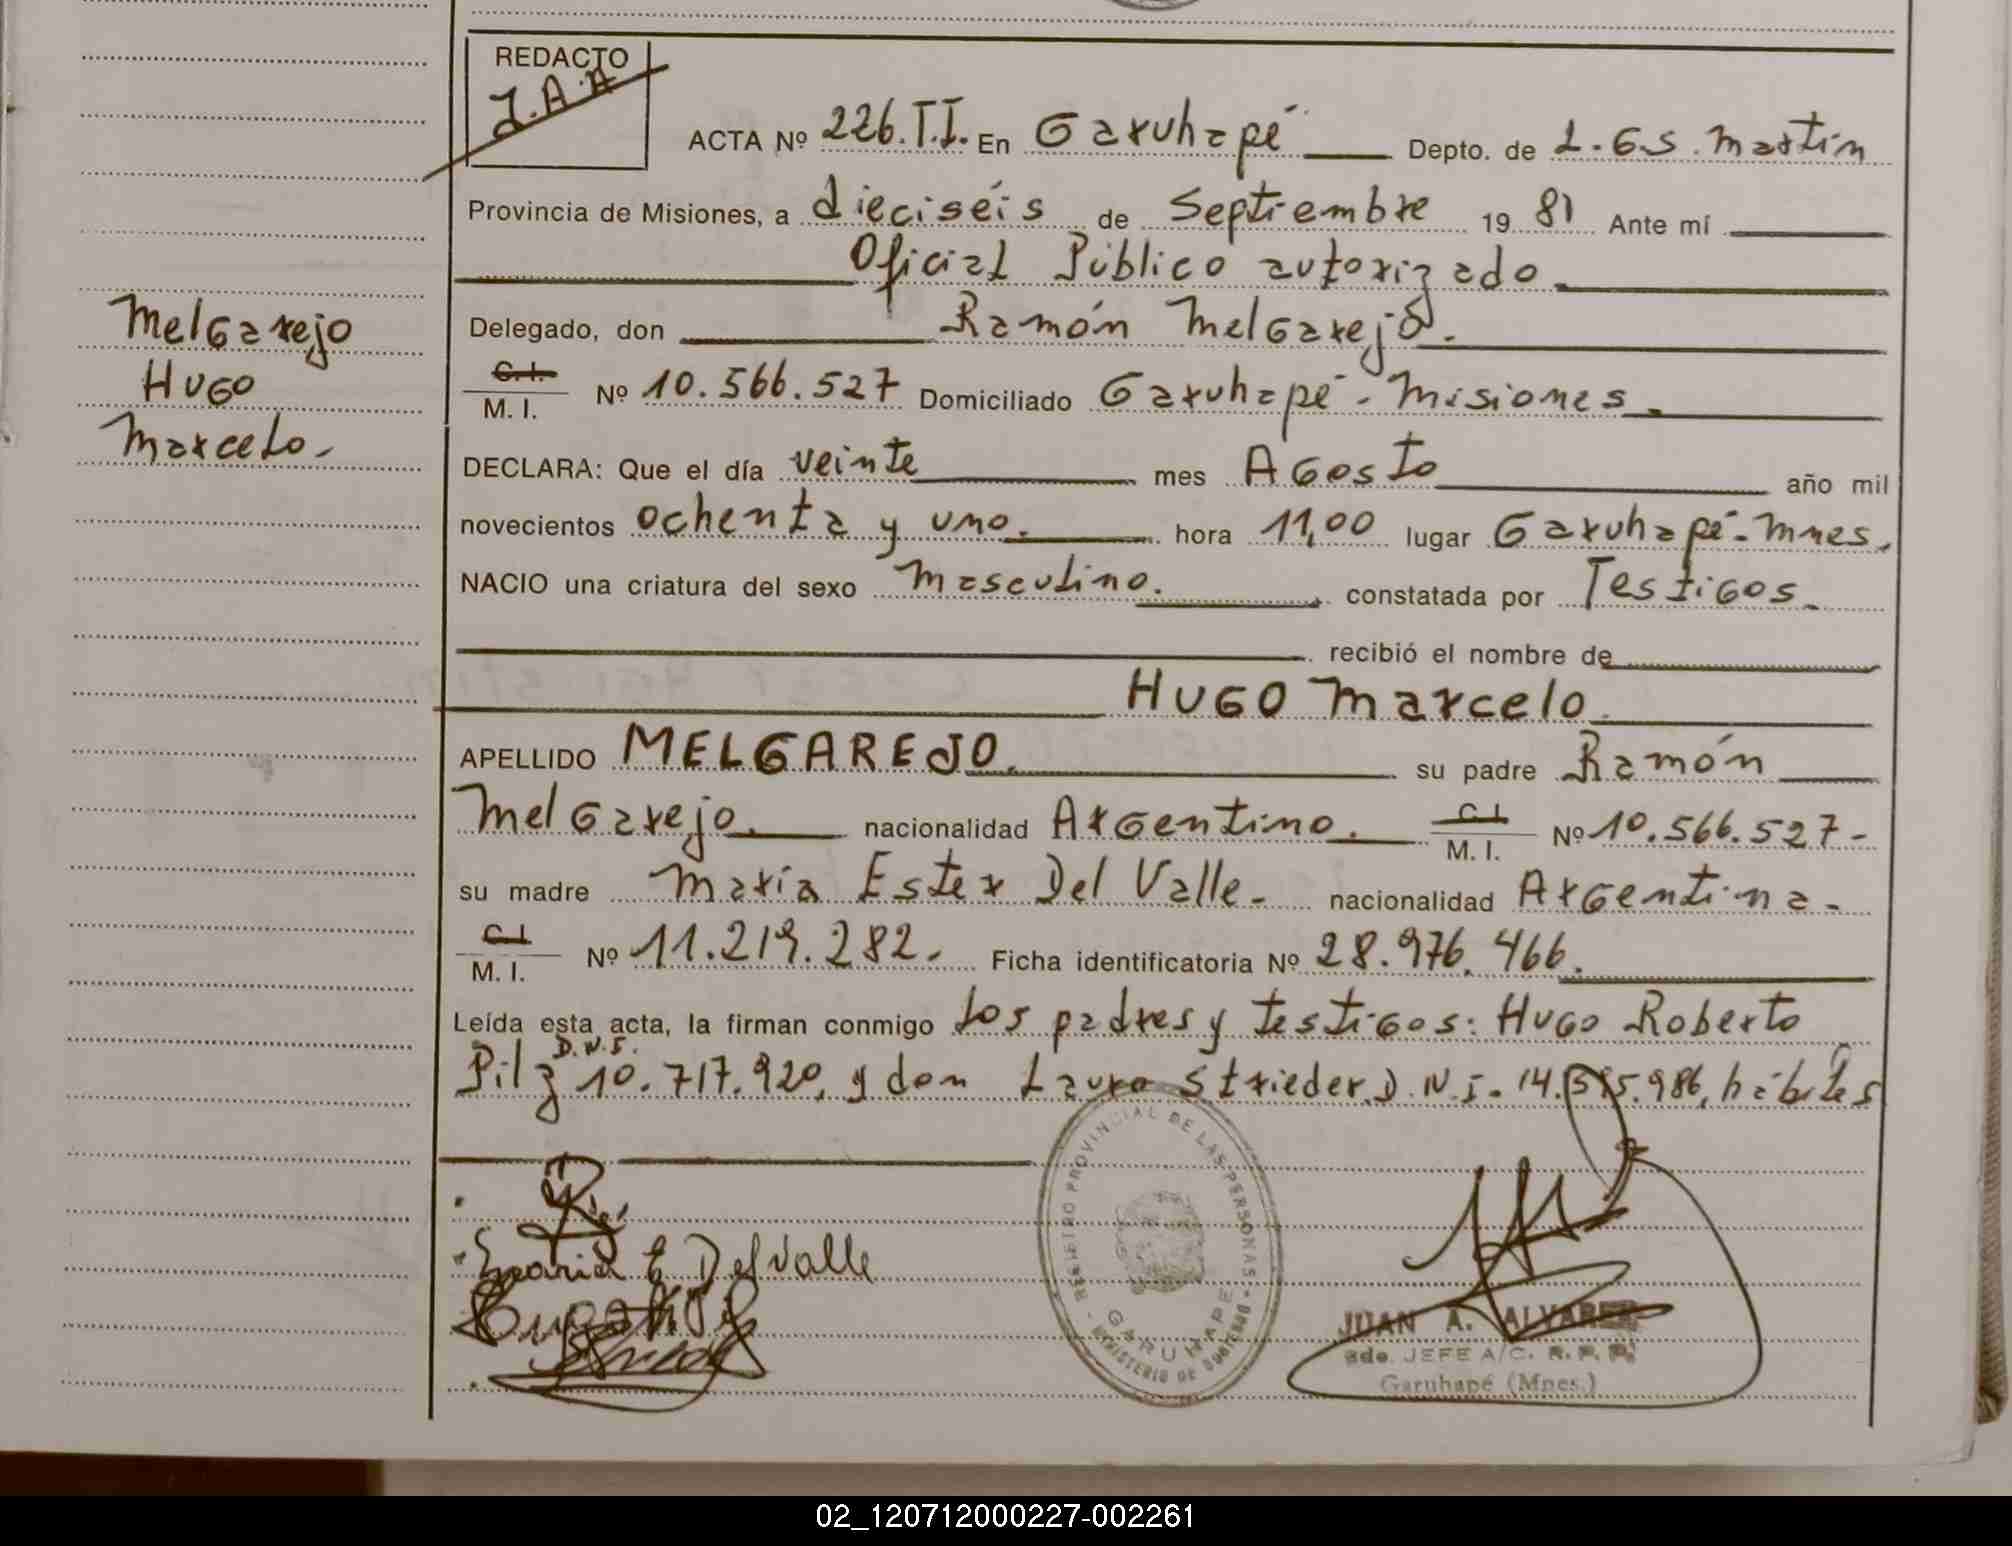 REDACTO
J.A.A
ACTA Nº 226.T.I. En Garuhapé Depto. de L.G.S. Martín
Provincia de Misiones, a dieciséis de Septiembre 19 81 Ante mí
Oficial Público autorizado
Delegado, don Ramón Melgarejo.
C.I.
M. I. Nº 10.566.527 Domiciliado Garuhapé - Misiones.
DECLARA: Que el día veinte mes Agosto año mil
novecientos ochenta y uno. hora 11,00 lugar Garuhapé - Mnes.
NACIO una criatura del sexo Masculino. constatada por Testigos.
recibió el nombre de
HUGO Marcelo
APELLIDO MELGAREJO. su padre Ramón
Melgarejo. nacionalidad Argentino. C.I.
M. I. Nº 10.566.527-
su madre María Ester Del Valle. nacionalidad Argentina.
C.I.
M. I. Nº 11.219.282. Ficha identificatoria Nº 28.976.466.
Leída esta acta, la firman conmigo los padres y testigos: Hugo Roberto
Pilz D.N.I. 10.717.920, y don Lauro Strieder D.N.I. 14.595.986, hábiles
Melgarejo
Hugo
Marcelo.-
Maria E Del Valle
REGISTRO PROVINCIAL DE LAS PERSONAS
GARUHAPE
MINISTERIO DE GOBIERNO
JUAN A. ALVAREZ
JEFE A/C. R. P. P.
Garuhapé (Mnes.)
02_120712000227-002261